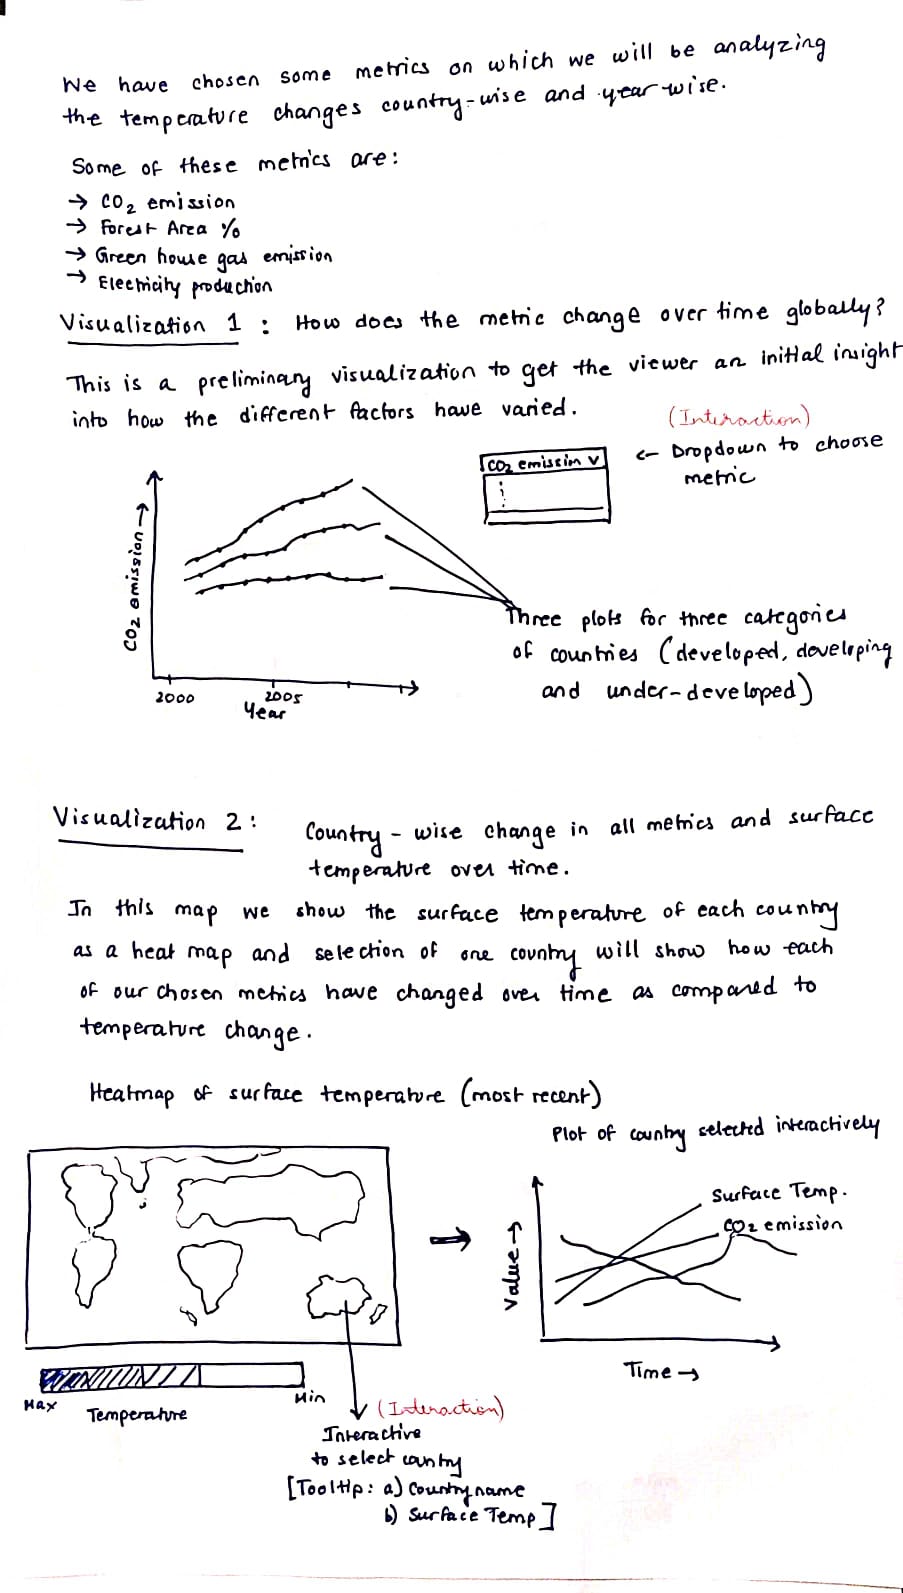 We have chosen some metrics on which we will be analyzing
the temperature changes country-wise and year-wise.
Some of these metrics are:
→ CO2 emission
→ Forest Area %
→ Green house gas emission
→ Electricity production
Visualization 1 : How does the metric change over time globally?
This is a preliminary visualization to get the viewer an initial insight
into how the different factors have varied.
(Interaction)
← Dropdown to choose
metric
CO2 emission v
CO2 emission →
2000
2005
Year
Three plots for three categories
of countries (developed, developing
and under-developed)
Visualization 2 :
Country - wise change in all metrics and surface
temperature over time.
In this map we show the surface temperature of each country
as a heat map and selection of one country will show how each
of our chosen metrics have changed over time as compared to
temperature change.
Heatmap of surface temperature (most recent)
Plot of country selected interactively
Surface Temp.
CO2 emission
Value →
Time →
Max
Temperature
Min
(Interaction)
Interactive
to select country
[Tooltip: a) Country name
b) Surface Temp]